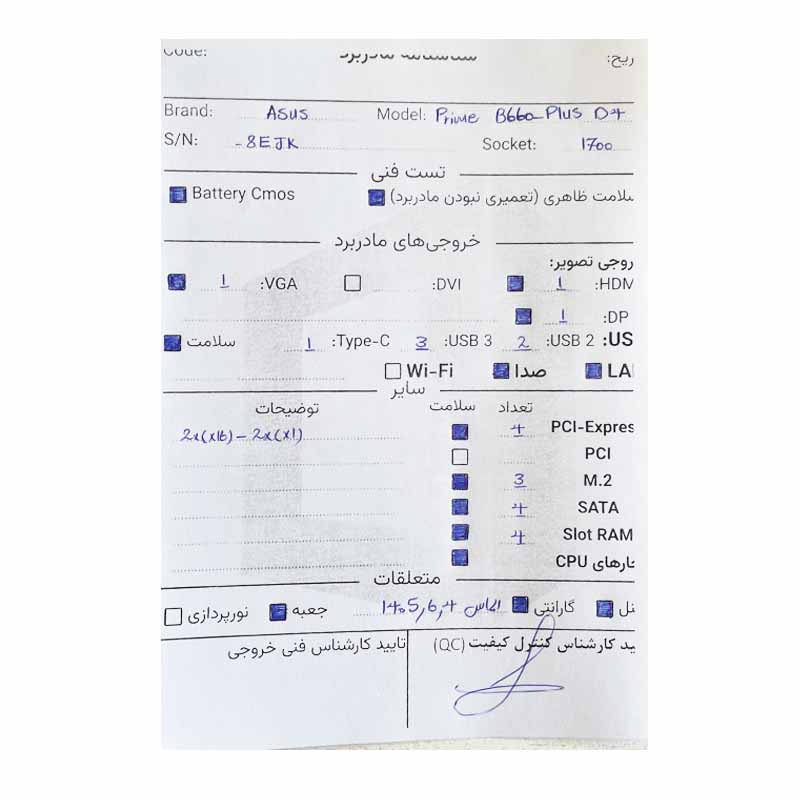 Code: شناسنامه مادربرد ریخ:
Brand: Asus Model: Prime B660-Plus D4
S/N: -8EJK Socket: 1700
تست فنی
سلامت ظاهری (تعمیری نبودن مادربرد) Battery Cmos
خروجی‌های مادربرد
روجی تصویر:
HDM: 1 DVI: VGA: 1
DP: 1
US: USB 2: 2 USB 3: 3 Type-C: 1 سلامت
LA صدا Wi-Fi
سایر
تعداد سلامت توضیحات
PCI-Expres 4 2x(x16) - 2x(x1)
PCI
M.2 3
SATA 4
Slot RAM 4
خارهای CPU
متعلقات
نل گارانتی الماس 1405,6,4 جعبه نورپردازی
ید کارشناس کنترل کیفیت (QC) تایید کارشناس فنی خروجی